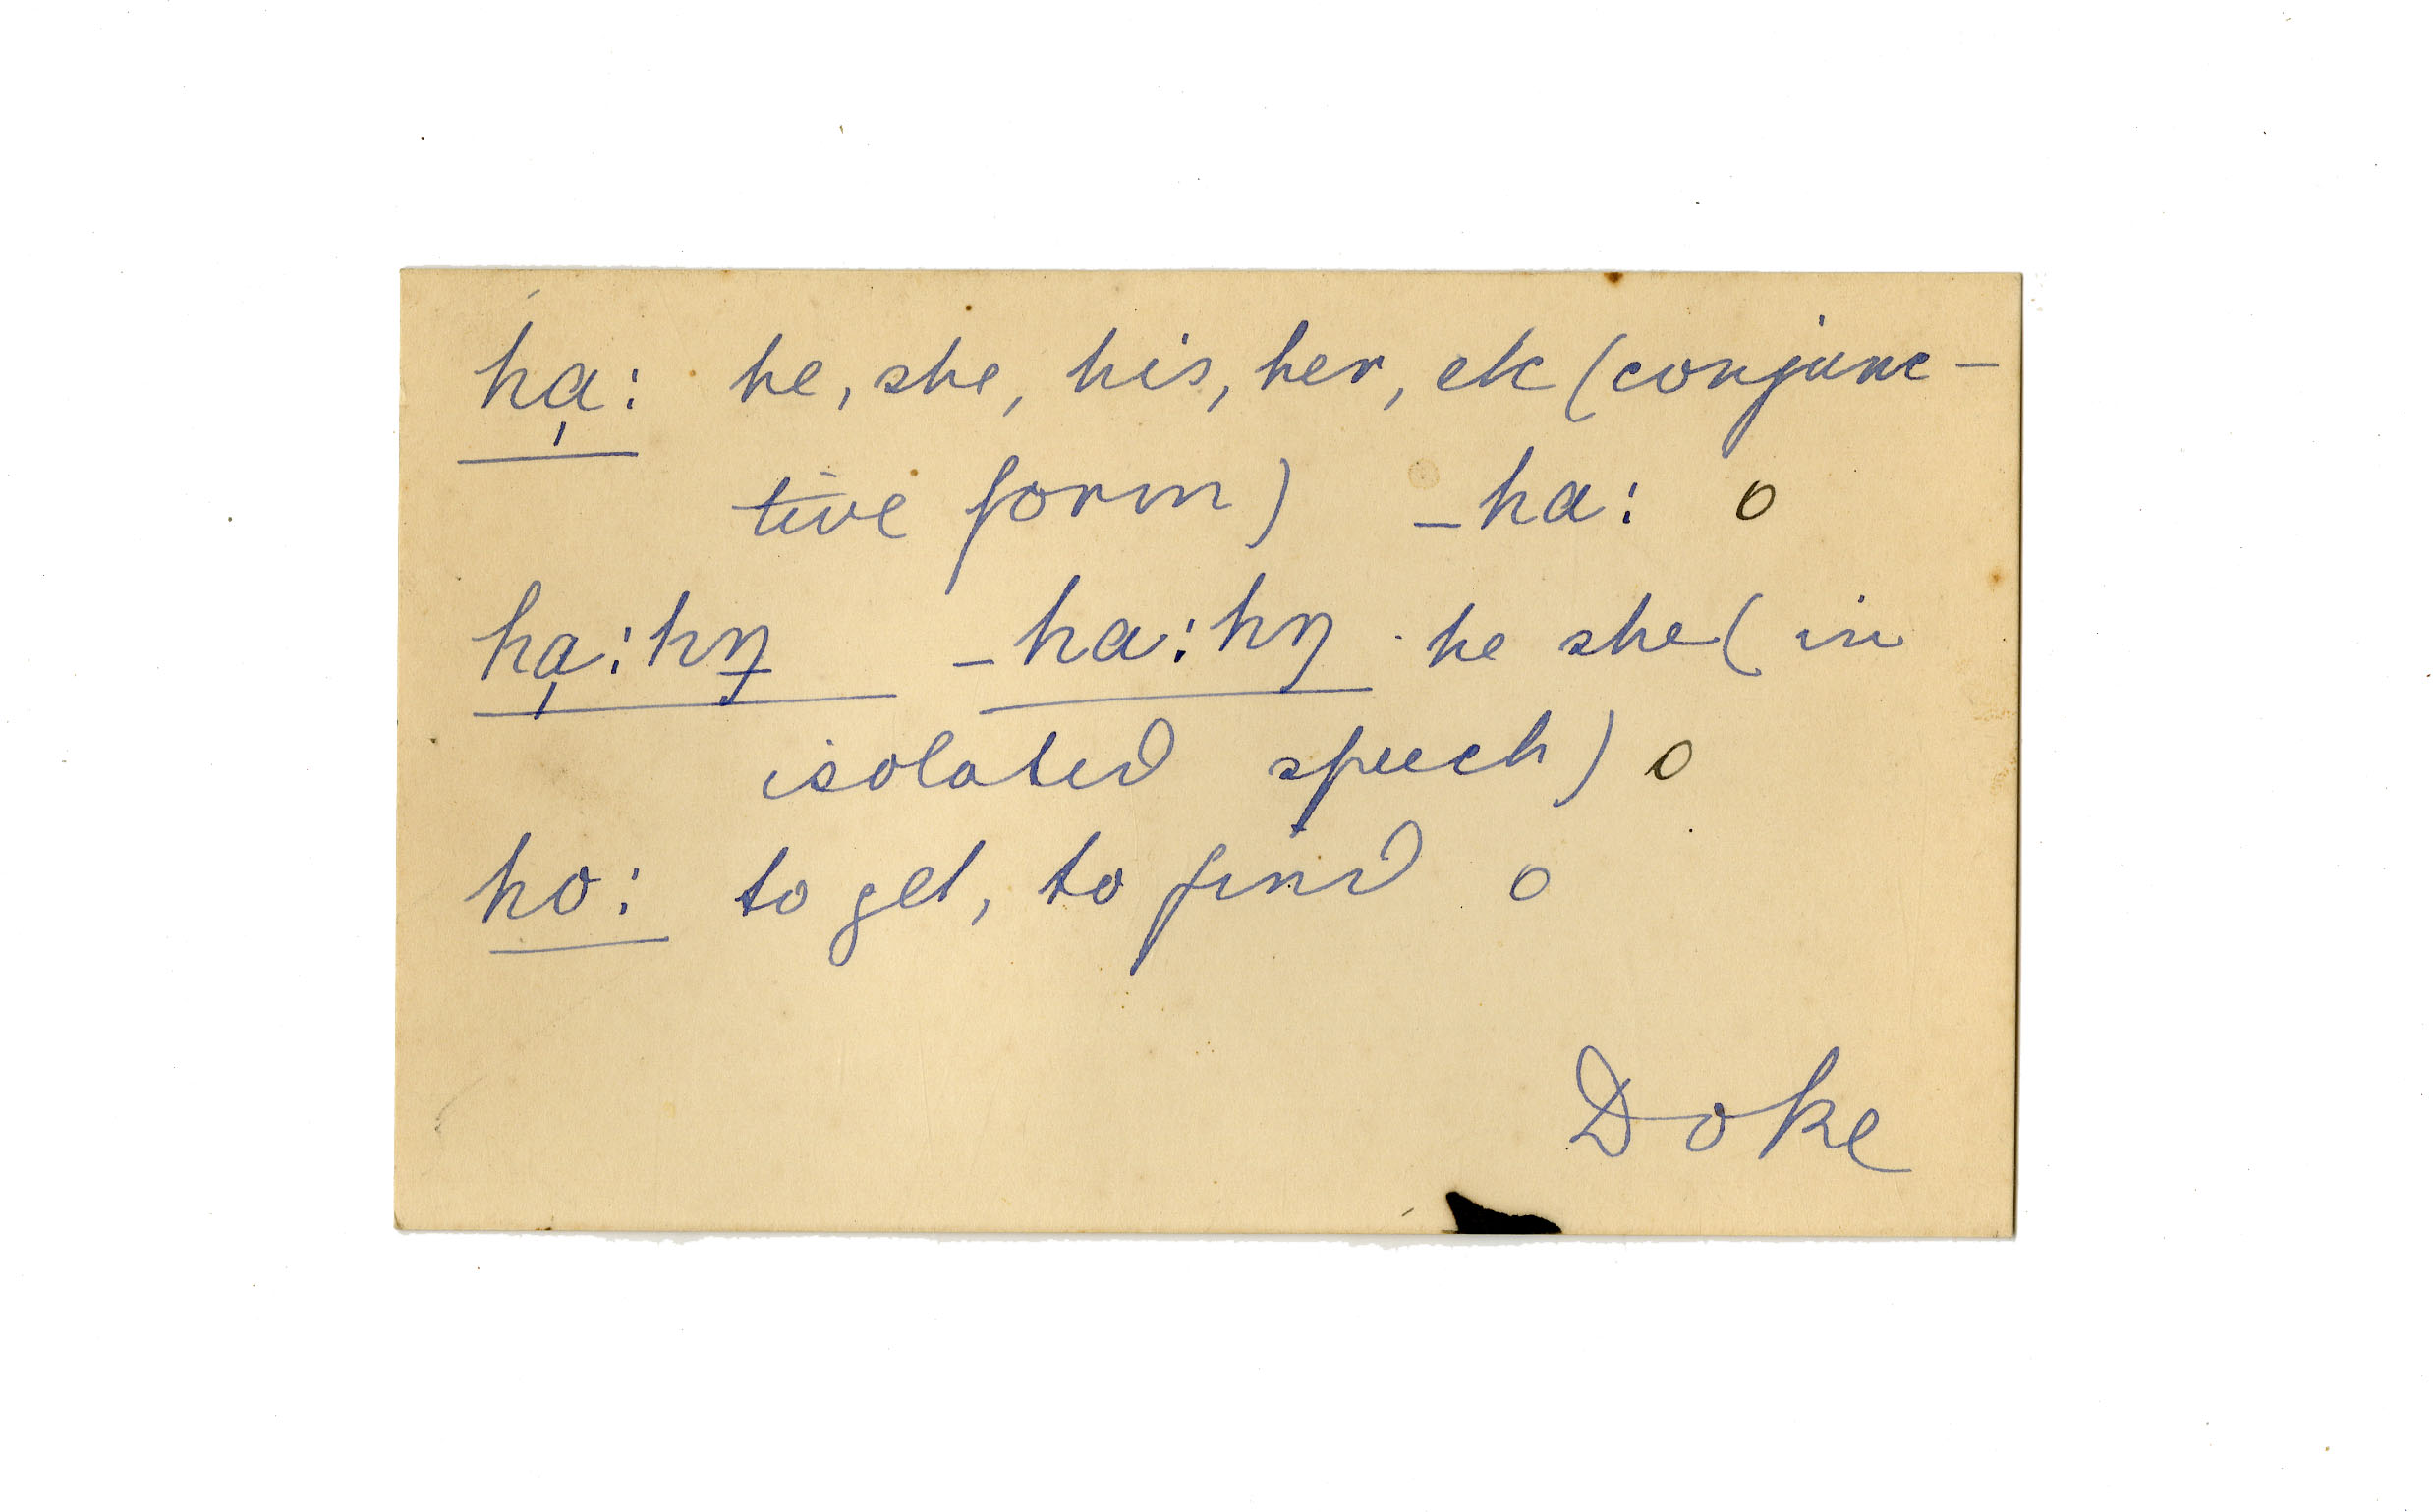 ha̩: he, she, his, her, etc (conjunc-
tive form) _ha: o
ha̩:hŋ̵ _ha:hŋ he she (in
isolated speech) o
ho: to get, to find o
Doke